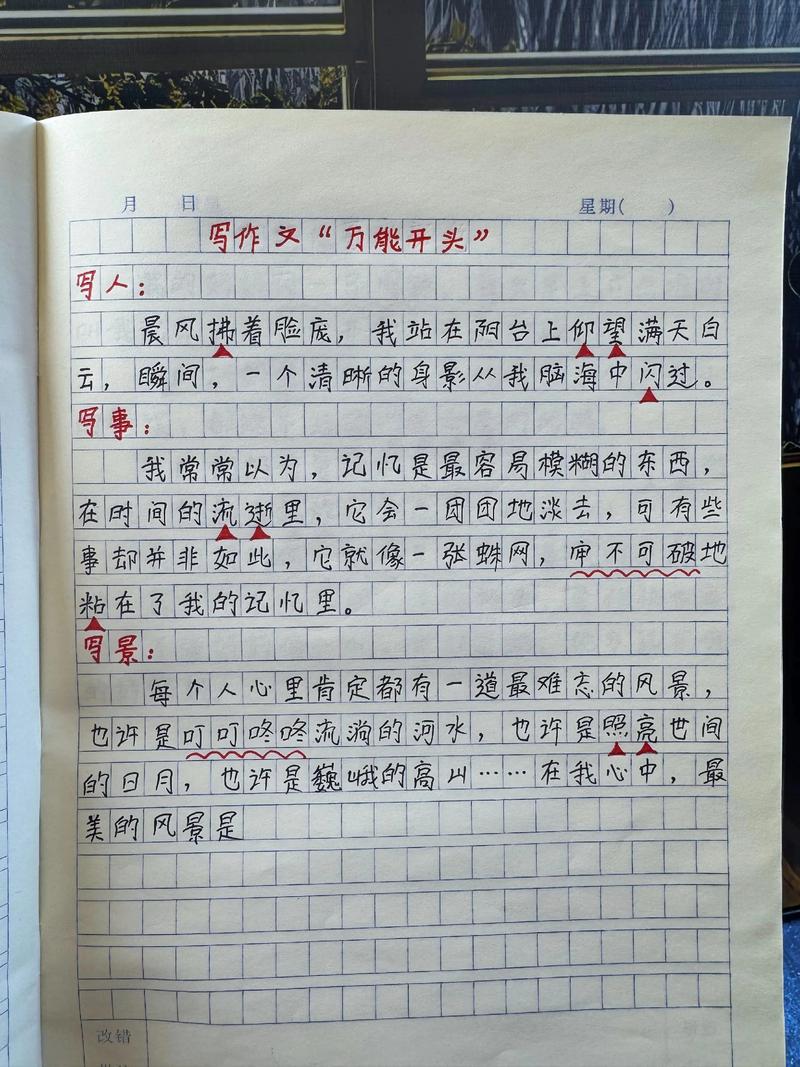 月 日 星期( )
写作文“万能开头”
写人：
晨风拂着脸庞，我站在阳台上仰望满天白
云，瞬间，一个清晰的身影从我脑海中闪过。
写事：
我常常以为，记忆是最容易模糊的东西，
在时间的流逝里，它会一团团地淡去，可有些
事却并非如此，它就像一张蛛网，牢不可破地
粘在了我的记忆里。
写景：
每个人心里肯定都有一道最难忘的风景，
也许是叮叮咚咚流淌的河水，也许是照亮世间
的日月，也许是巍峨的高山……在我心中，最
美的风景是
改错